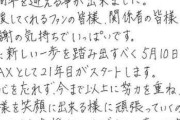 周年を迎える事が出来ました。
援してくれるファンの皆様、関係者の皆様
謝の気持ちでいっぱいです。
新しい一歩を踏み出すべく5月10日
AXとして21年目がスタートします。
心を忘れず今まで以上に努力を重ね、
様を笑顔に出来る様に頑張っていくの